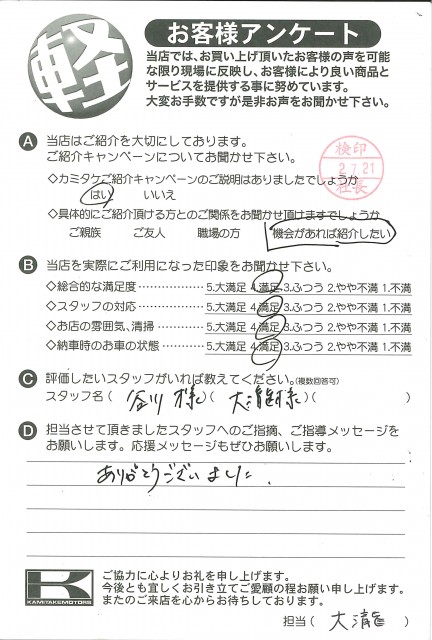 軽
お客様アンケート
当店では、お買い上げ頂いたお客様の声を可能
な限り現場に反映し、お客様により良い商品と
サービスを提供する事に努めています。
大変お手数ですが是非お声をお聞かせ下さい。
A 当店はご紹介を大切にしております。
ご紹介キャンペーンについてお聞かせ下さい。
検印
2.7.21
社長
◇カミタケご紹介キャンペーンのご説明はありましたでしょうか
はい いいえ
◇具体的にご紹介頂ける方とのご関係をお聞かせ頂けますでしょうか
ご親族 ご友人 職場の方 機会があれば紹介したい
B 当店を実際にご利用になった印象をお聞かせ下さい。
◇総合的な満足度 5.大満足 4.満足 3.ふつう 2.やや不満 1.不満
◇スタッフの対応 5.大満足 4.満足 3.ふつう 2.やや不満 1.不満
◇お店の雰囲気、清掃 5.大満足 4.満足 3.ふつう 2.やや不満 1.不満
◇納車時のお車の状態 5.大満足 4.満足 3.ふつう 2.やや不満 1.不満
C 評価したいスタッフがいれば教えてください。(複数回答可)
スタッフ名 ( 谷川 様 ) ( 大瀧様 ) ( )
D 担当させて頂きましたスタッフへのご指摘、ご指導メッセージを
お願いします。応援メッセージもぜひお願いします。
ありがとうございました.
K
KAMITAKEMOTORS
ご協力に心よりお礼を申し上げます。
今後とも宜しくお引き立てご愛顧の程お願い申し上げます。
またのご来店を心からお待ちしております。
担当 ( 大瀧 )